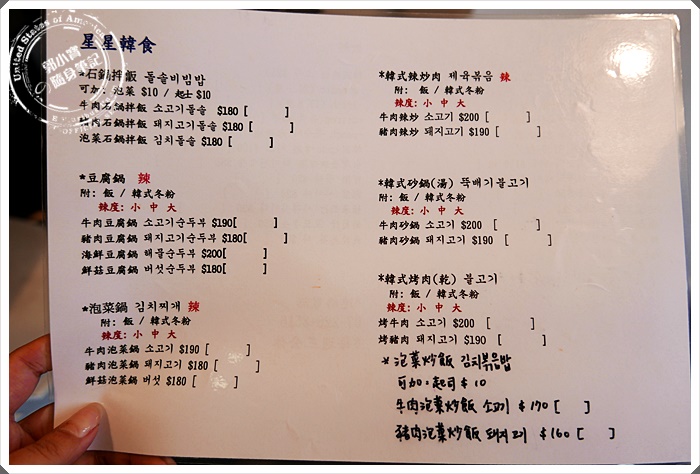 星星韓食
*石鍋拌飯 돌솥비빔밥
可加: 泡菜 $10 / 起士 $10
牛肉石鍋拌飯 소고기돌솥 $180 [ ]
豬肉石鍋拌飯 돼지고기돌솥 $180 [ ]
泡菜石鍋拌飯 김치돌솥 $180 [ ]
*豆腐鍋 辣
附: 飯 / 韓式冬粉
辣度: 小 中 大
牛肉豆腐鍋 소고기순두부 $190[ ]
豬肉豆腐鍋 돼지고기순두부 $180[ ]
海鮮豆腐鍋 해물순두부 $200[ ]
鮮菇豆腐鍋 버섯순두부 $180[ ]
*泡菜鍋 김치찌개 辣
附: 飯 / 韓式冬粉
辣度: 小 中 大
牛肉泡菜鍋 소고기 $190 [ ]
豬肉泡菜鍋 돼지고기 $180 [ ]
鮮菇泡菜鍋 버섯 $180 [ ]
*韓式辣炒肉 제육볶음 辣
附: 飯 / 韓式冬粉
辣度: 小 中 大
牛肉辣炒 소고기 $200 [ ]
豬肉辣炒 돼지고기 $190 [ ]
*韓式砂鍋(湯) 뚝배기불고기
附: 飯 / 韓式冬粉
辣度: 小 中 大
牛肉砂鍋 소고기 $200 [ ]
豬肉砂鍋 돼지고기 $190 [ ]
*韓式烤肉(乾) 불고기
附: 飯 / 韓式冬粉
辣度: 小 中 大
烤牛肉 소고기 $200 [ ]
烤豬肉 돼지고기 $190 [ ]
* 泡菜炒飯 김치볶음밥
可加: 起司 $10
牛肉泡菜炒飯 소고기 $170 [ ]
豬肉泡菜炒飯 돼지고기 $160 [ ]
United States of America
郭小寶
の隨身筆記